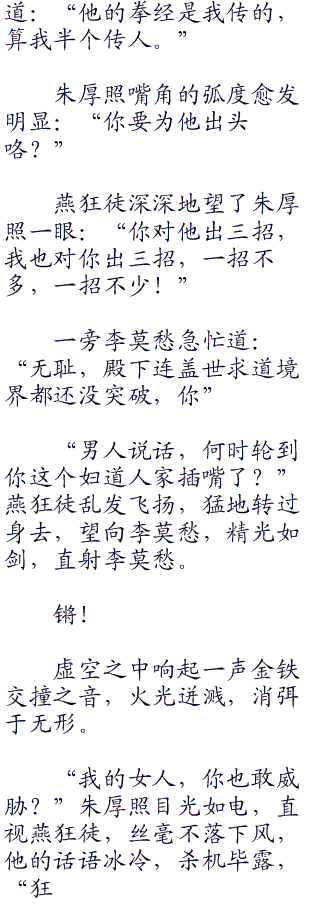 道：“他的拳经是我传的，
算我半个传人。”
朱厚照嘴角的弧度愈发
明显：“你要为他出头
咯？”
燕狂徒深深地望了朱厚
照一眼：“你对他出三招，
我也对你出三招，一招不
多，一招不少！”
一旁李莫愁急忙道：
“无耻，殿下连盖世求道境
界都还没突破，你”
“男人说话，何时轮到
你这个妇道人家插嘴了？”
燕狂徒乱发飞扬，猛地转过
身去，望向李莫愁，精光如
剑，直射李莫愁。
锵！
虚空之中响起一声金铁
交撞之音，火光迸溅，消弭
于无形。
“我的女人，你也敢威
胁？”朱厚照目光如电，直
视燕狂徒，丝毫不落下风，
他的话语冰冷，杀机毕露，
“狂